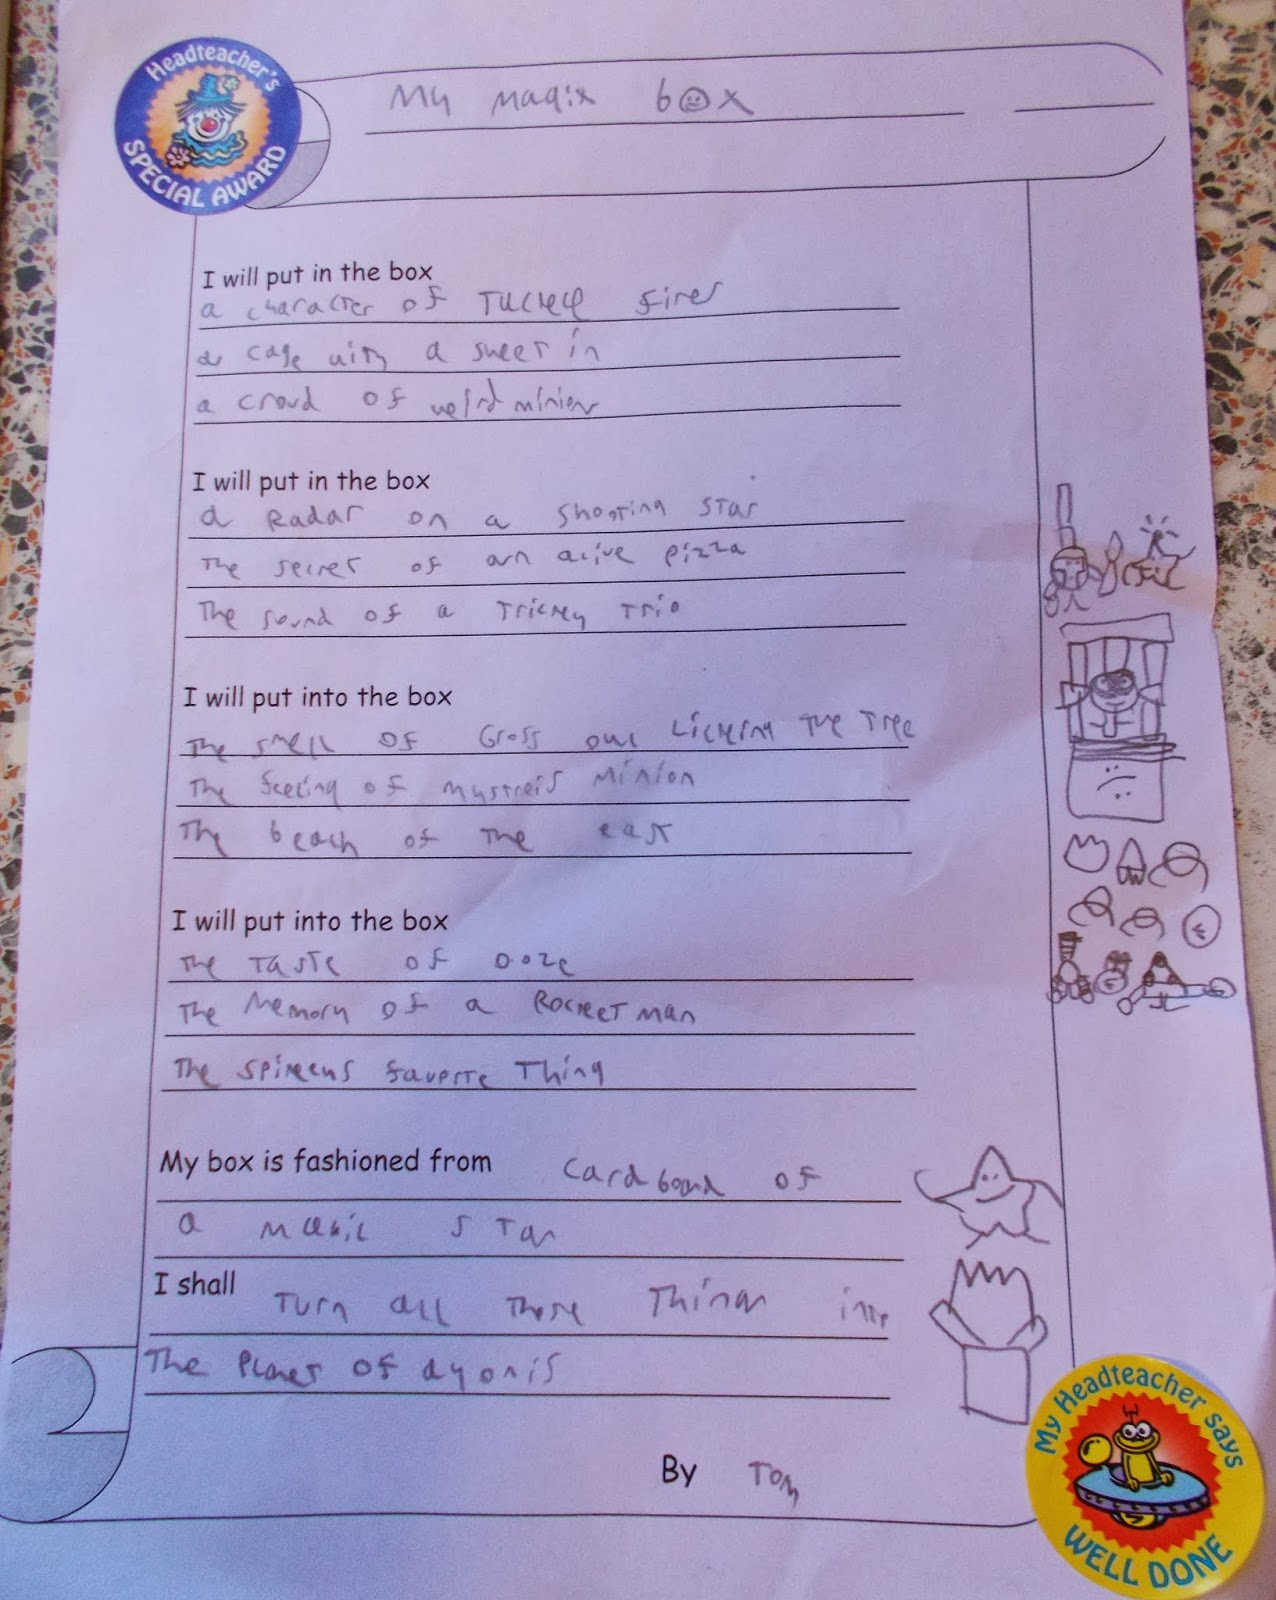 Headteacher's
SPECIAL AWARD
My magix box
I will put in the box
a character of fires
a cage with a sweet in
a croud of weird minions
I will put in the box
a Radar on a shooting star
The secret of an alive pizza
The sound of a Trickey Trio
I will put into the box
The smell of Gross owl Licking the Tree
The feeling of mystreis minion
The beach of the east
I will put into the box
The Taste of ooze
The Memory of a Rockeet man
The favorite Thing
My box is fashioned from cardboard of
a magic star
I shall Turn all These Things into
The Planet of ayonis
By Tom
My Headteacher says
WELL DONE